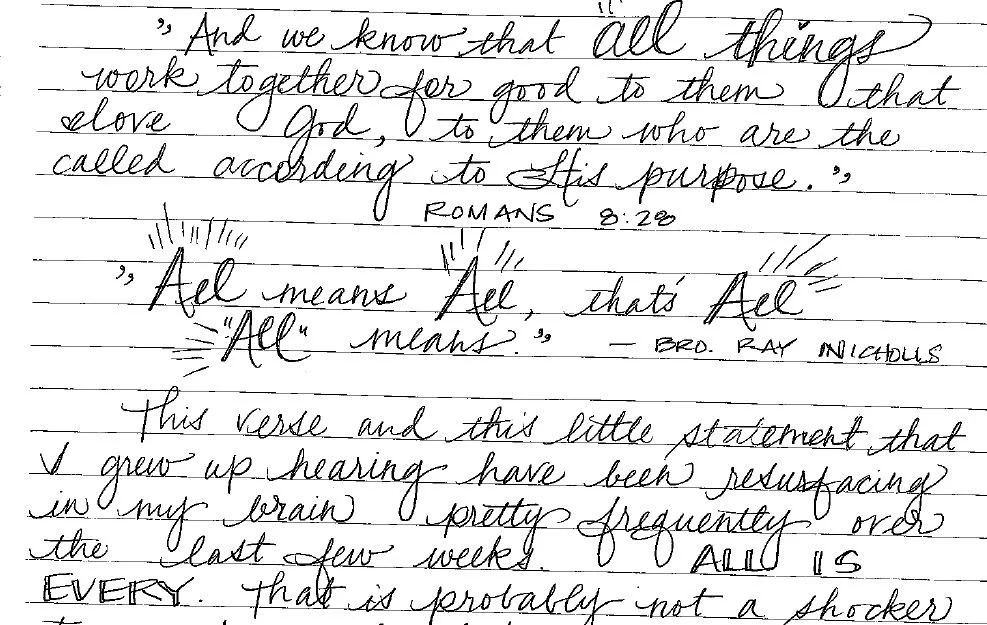 "And we know that all things
work together for good to them that
love God, to them who are the
called according to His purpose."
ROMANS 8:28
"All means All, that's All
"All" means." — BRO. RAY NICHOLLS
This verse and this little statement that
I grew up hearing have been resurfacing
in my brain pretty frequently over
the last few weeks. ALL IS
EVERY. That is probably not a shocker